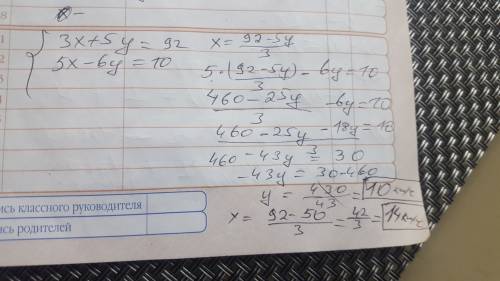 x-
3x+5y=92 x=92-5y/3
5x-6y=10 5·(92-5y)/3-6y=10
460-25y/3 -6y=10
460-25y-18y/3=10
460-43y=30
-43y=30-460
y=430/43=10
x=92-50/3=42/3=14
ись классного руководителя
ись родителей